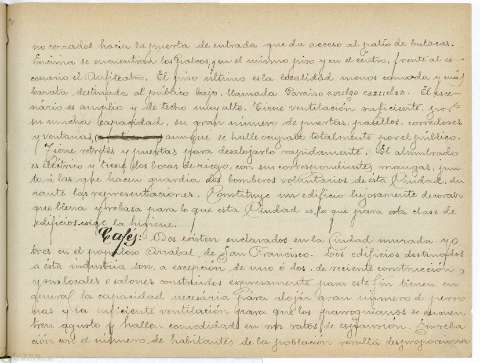 no cerrados hacia la puerta de entrada que da acceso al patio de butacas.
Encima se encuentran los palcos, y en el mismo piso y en el centro, frente al es-
cenario el Anfiteatro. El piso último es la localidad menos cómoda y más
barata destinada al público bajo, llamada Paraíso cazuela. El esce-
nario es amplio y de techo muy alto. Tiene ventilación suficiente, por
su mucha capacidad, su gran número de puertas, pasillos, corredores
y ventanas, aunque se halle ocupado totalmente por el público.
Tiene retretes y puertas para desalojarlo rápidamente. El alumbrado
es eléctrico y tiene dos bocas de riego, con sus correspondientes mangas, jun-
to a las que hacen guardia dos bomberos voluntarios de esta Ciudad, du-
rante las representaciones. Constituye un edificio lujosamente decorado
que llena y rebasa para lo que esta Ciudad es, lo que para esta clase de
edificios exige la higiene.
Cafés: Dos existen enclavados en la Ciudad murada y o-
tros en el populoso Arrabal de San Francisco. Los edificios destinados
a esta industria son, a excepción de uno o dos, de reciente construcción
y sus locales o salones construídos expresamente para este fin tienen en
general la capacidad necesaria para alojar gran número de perso-
nas y la suficiente ventilación para que los parroquianos se encuen-
tren a gusto y hallen comodidad en sus ratos de expansión. En rela-
ción con el número de habitantes de la población resulta desproporciona